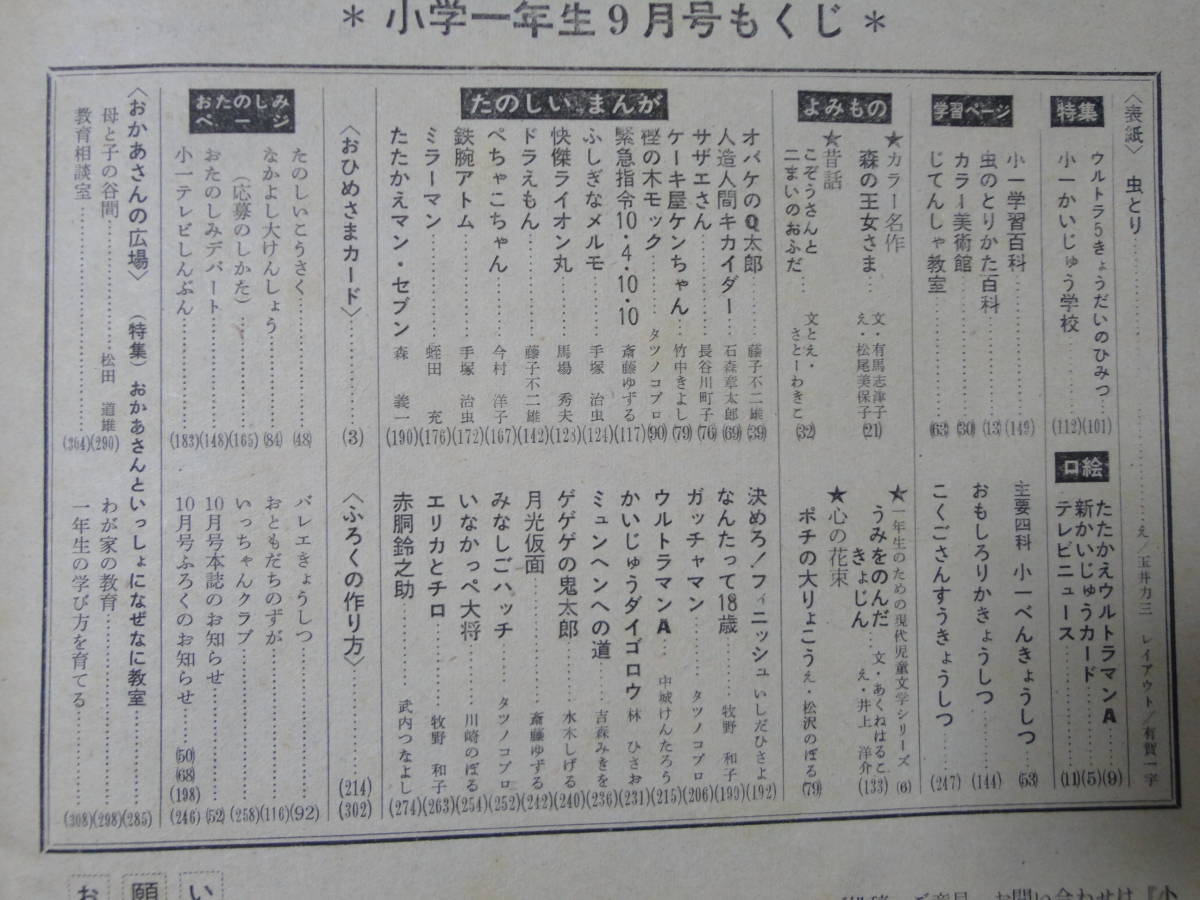 ＊ 小学一年生9月号もくじ ＊
〈表紙〉 虫とり え／玉井力三 レイアウト／有賀一宇
特集
ウルトラ5きょうだいのひみつ (101)
小一かいじゅう学校 (112)
口絵
たたかえウルトラマンA (9)
新かいじゅうカード (5)
テレビニュース (11)
学習ページ
小一学習百科 (149)
虫のとりかた百科 (13)
カラー美術館 (30)
じてんしゃ教室 (63)
主要四科 小一べんきょうしつ (53)
おもしろりかきょうしつ (144)
こくごさんすうきょうしつ (247)
よみもの
★カラー名作
森の王女さま 文・有馬志津子 え・松尾美保子 (21)
★昔話
こぞうさんと二まいのおふだ 文とえ・さとーわきこ (32)
★一年生のための現代児童文学シリーズ (6)
うみをのんだきょじん 文・あくねはるこ え・井上 洋介 (133)
★心の花束
ポチの大りょこう え・松沢のぼる (79)
たのしいまんが
オバケのQ太郎 藤子不二雄 (39)
人造人間キカイダー 石森章太郎 (69)
サザエさん 長谷川町子 (76)
ケーキ屋ケンちゃん 竹中きよし (79)
樫の木モック タツノコプロ (90)
緊急指令10・4・10・10 斎藤ゆずる (117)
ふしぎなメルモ 手塚 治虫 (124)
快傑ライオン丸 馬場 秀夫 (128)
ドラえもん 藤子不二雄 (142)
ぺちゃこちゃん 今村 洋子 (167)
鉄腕アトム 手塚 治虫 (172)
ミラーマン 蛭田 充 (176)
たたかえマン・セブン 森 義一 (190)
決めろ！フィニッシュ いしだひさよ (192)
なんたって18歳 牧野 和子 (199)
ガッチャマン タツノコプロ (206)
ウルトラマンA 中城けんたろう (215)
かいじゅうダイゴロウ 林 ひさお (231)
ミュンヘンへの道 吉森みきを (236)
ゲゲゲの鬼太郎 水木しげる (240)
月光仮面 斎藤ゆずる (242)
みなしごハッチ タツノコプロ (252)
いなかっぺ大将 川崎のぼる (254)
エリカとチロ 牧野 和子 (263)
赤胴鈴之助 武内つなよし (274)
〈おひめさまカード〉 (3)
〈ふろくの作り方〉 (214) (302)
おたのしみページ
たのしいこうさく (48)
なかよし大けんしょう (84)
(応募のしかた) (165)
おたのしみデパート (148)
小一テレビしんぶん (183)
バレエきょうしつ (92)
おともだちのずが (116)
いっちゃんクラブ (258)
10月号本誌のお知らせ (52)
10月号ふろくのお知らせ (50) (68) (198) (246)
〈おかあさんの広場〉 (特集) おかあさんといっしょになぜなに教室 (285)
母と子の谷間 松田 道雄 (290)
教育相談室 (304)
わが家の教育 (298)
一年生の学び方を育てる (308)
お願い